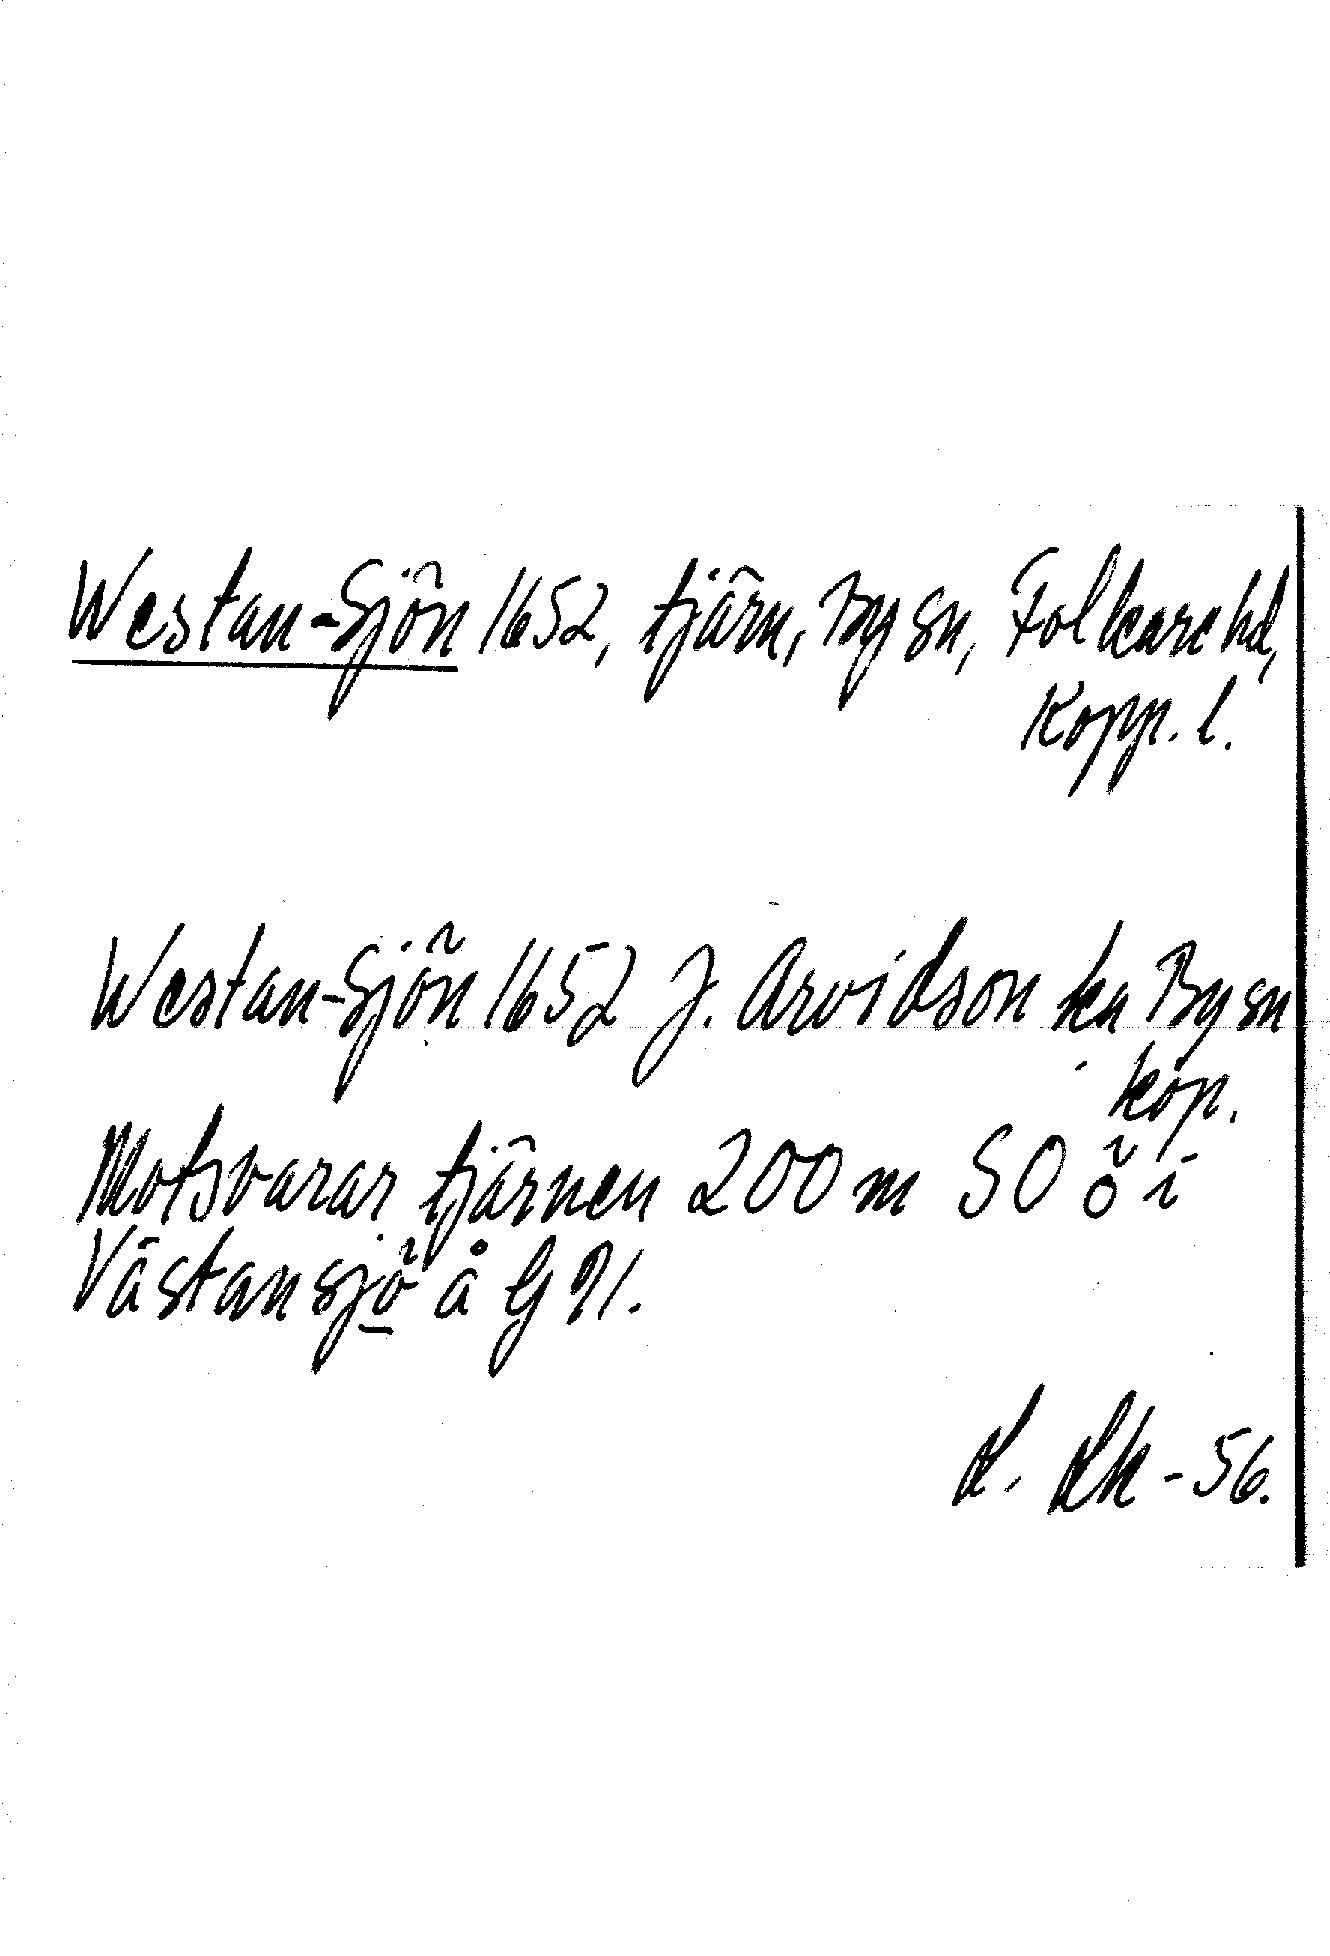 Westan-Sjön 1652, tjärn, By sn, Folkare hd,
Kopp. l.
Westan-Sjön 1652 J. Arvidson ka By sn
kop.
Motsvarar tjärnen 200 m SO ö i
Västansjö å G 71.
-56.